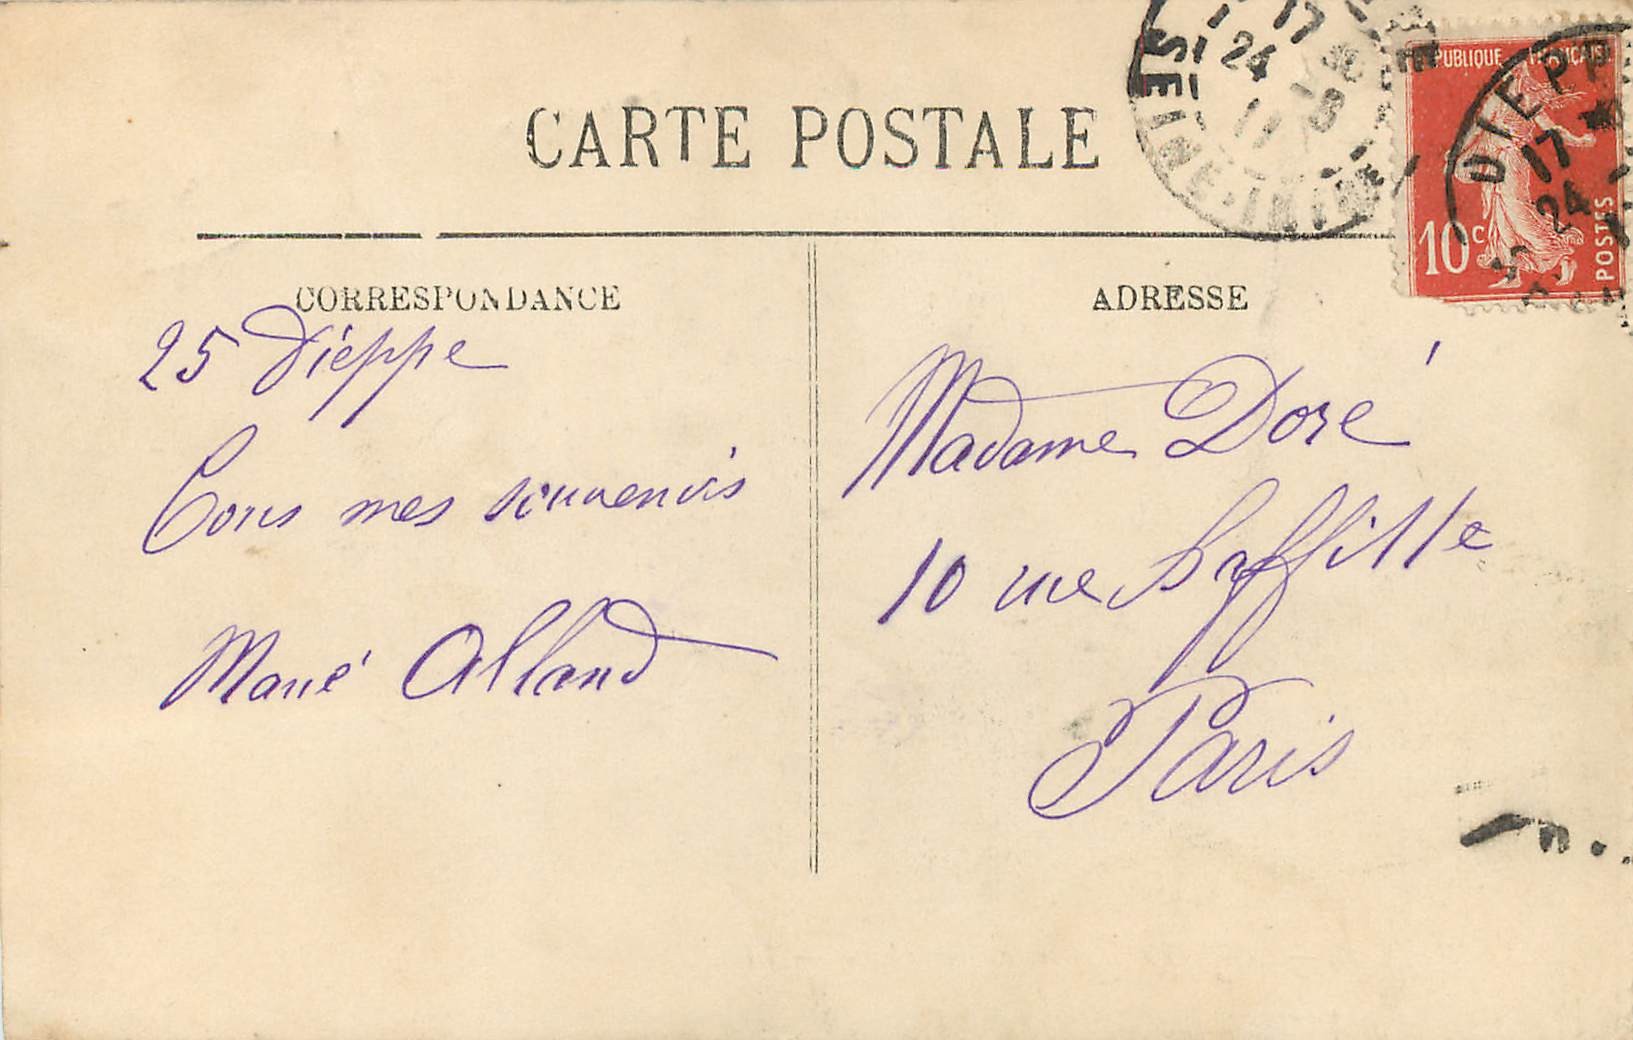 CARTE POSTALE
CORRESPONDANCE
25 Dieppe
Tous mes souvenirs
Marie Alland
ADRESSE
Madame Doré
10 rue Laffitte
Paris
RÉPUBLIQUE FRANÇAISE
10 c
POSTES
DIEPPE
17
24
SEINE-INFRE
17
24
11